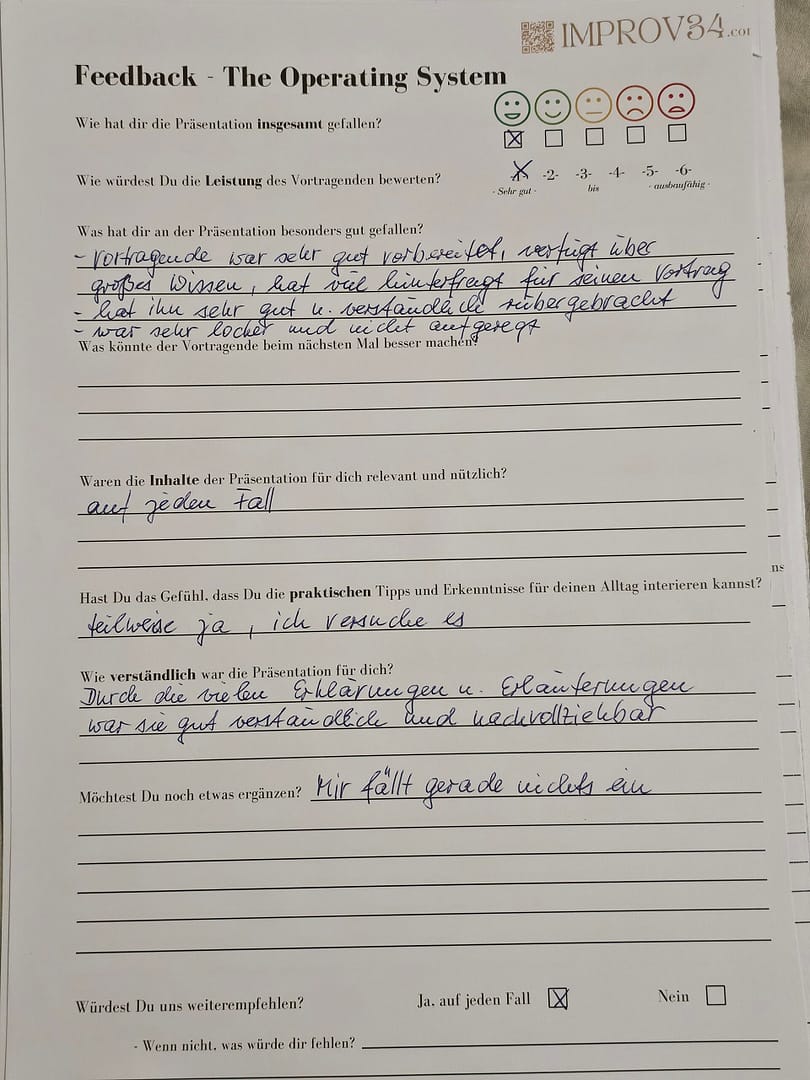 IMPROV34.com
Feedback - The Operating System
Wie hat dir die Präsentation insgesamt gefallen?
Wie würdest Du die Leistung des Vortragenden bewerten? -2- -3- -4- -5- -6-
- Sehr gut - bis - ausbaufähig -
Was hat dir an der Präsentation besonders gut gefallen?
- Vortragende war sehr gut vorbereitet, verfügt über
großes Wissen, hat viel hinterfragt für seinen Vortrag
- hat ihn sehr gut u. verständlich rübergebracht
- war sehr locker und nicht aufgeregt
Was könnte der Vortragende beim nächsten Mal besser machen?
Waren die Inhalte der Präsentation für dich relevant und nützlich?
auf jeden Fall
ns
Hast Du das Gefühl, dass Du die praktischen Tipps und Erkenntnisse für deinen Alltag interieren kannst?
teilweise ja, ich versuche es
Wie verständlich war die Präsentation für dich?
Durch die vielen Erklärungen u. Erläuterungen
war sie gut verständlich und nachvollziehbar
Möchtest Du noch etwas ergänzen? Mir fällt gerade nichts ein
Würdest Du uns weiterempfehlen? Ja, auf jeden Fall Nein
- Wenn nicht, was würde dir fehlen?